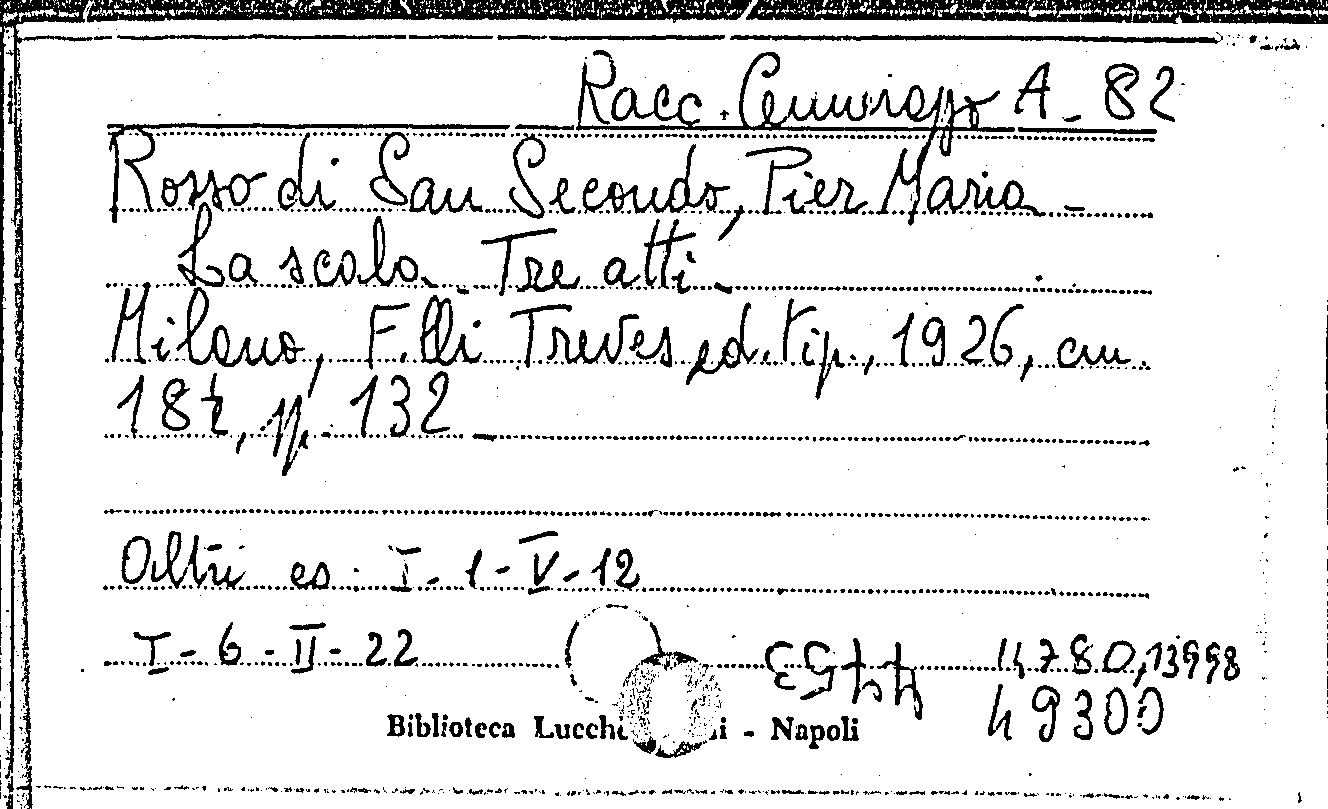 Racc. A - 82
Rosso di San Secondo, Pier Maria -
La scala - Tre atti -
Milano, F.lli Treves ed. tip., 1926, cm.
18½, pp. 132
Altri es. I - 1 - V - 12
I - 6 - II - 22
13998
49300
Biblioteca - Napoli